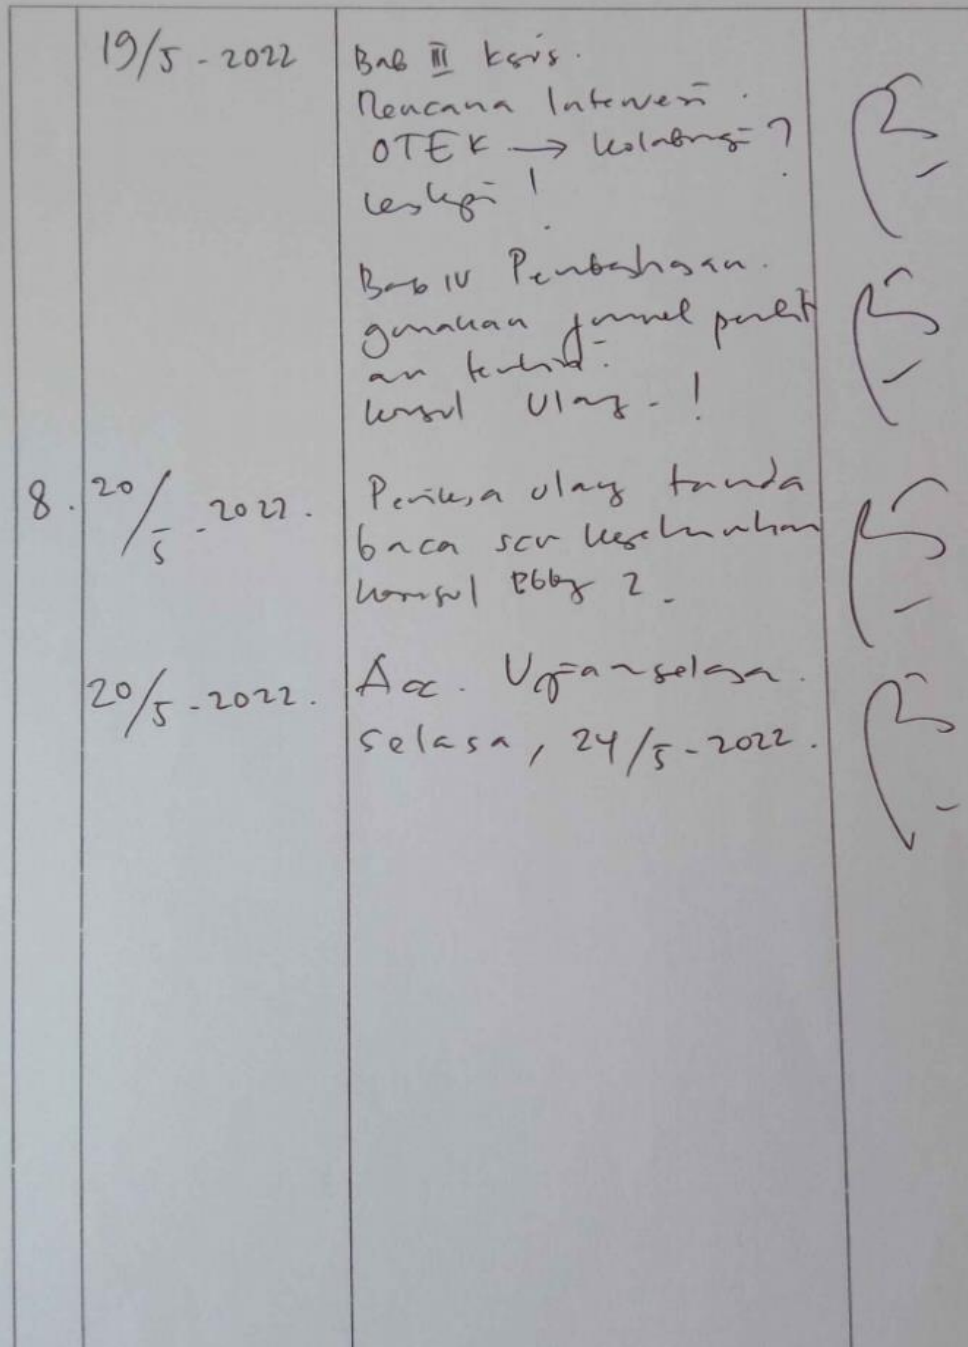 19/5 - 2022 Bab III
Rencana Intervensi.
OTEK → kolaborasi?
Bab IV Pembahasan.
gunakan jurnal penelit
an terkait.
konsul ulang - !
8. 20/5 - 2022. Periksa ulang tanda
baca scr keseluruhan
konsul 2.
20/5 - 2022. Acc. Ujian selasa.
selasa, 24/5 - 2022.